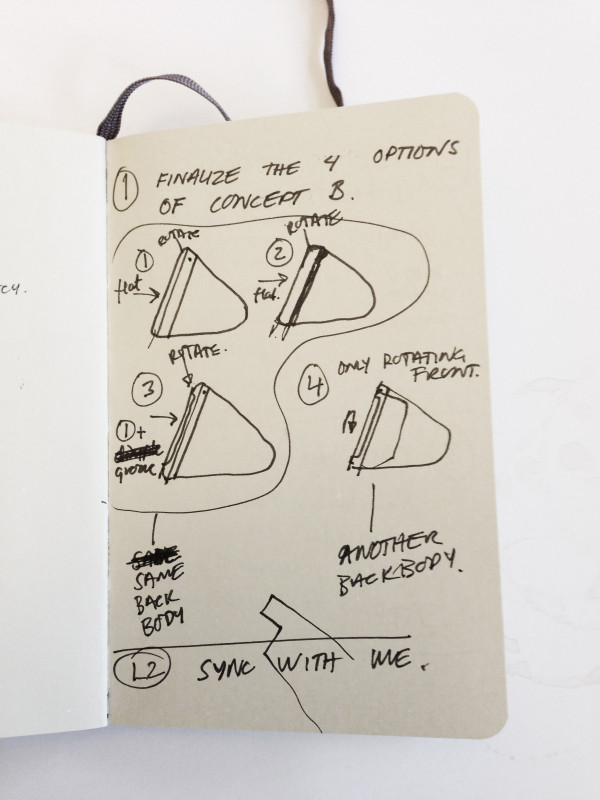 cy.
1 FINALIZE THE 4 OPTIONS
OF CONCEPT B.
ROTATE
1
flat
ROTATE
2
flat.
ROTATE.
3
1 +
groove
4 ONLY ROTATING
FRONT.
SAME
BACK
BODY
ANOTHER
BACKBODY.
L2 SYNC WITH ME.